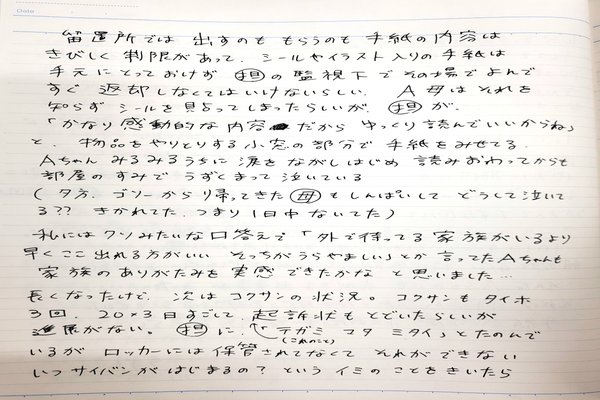 Date
留置所では 出すのも もらうのも 手紙の内容は
きびしく 制限があって、シールやイラスト入りの手紙は
手元にとっておけず 担の監視下で その場でよんで
すぐ 返却しなくてはいけないらしい. A母はそれを
知らず シールを貼ってしまったらしいが. 担が.
「かなり 感動的な内容 だから ゆっくり読んでいいからね」
と、物品をやりとりする小窓の部分で 手紙をみせてる.
Aちゃん みるみるうちに 涙をながしはじめ 読みおわってからも
部屋のすみで うずくまって泣いている
(夕方、ゴソーから帰ってきた 母もしんぱいして どうして泣いて
る?? きかれてた. つまり 1日中 ないてた)
私にはクソみたいな口答えで「外で待ってる 家族がいるより
早くここ出れる方がいい そっちがうらやましい」とか 言ってたAちゃんも
家族のありがたみを 実感できたかな と思いました…
長くなったけど、次はコクサンの状況。コクサンもタイホ
3回、20×3日すごして、起訴状もとどいたらしいが
進展がない。 担に「テガミ コタ ミタイ」とたのんで
(これのこと)
いるが ロッカーには保管されてなくて それができない
いつ サイバンがはじまるの? という イミのことをきいたら